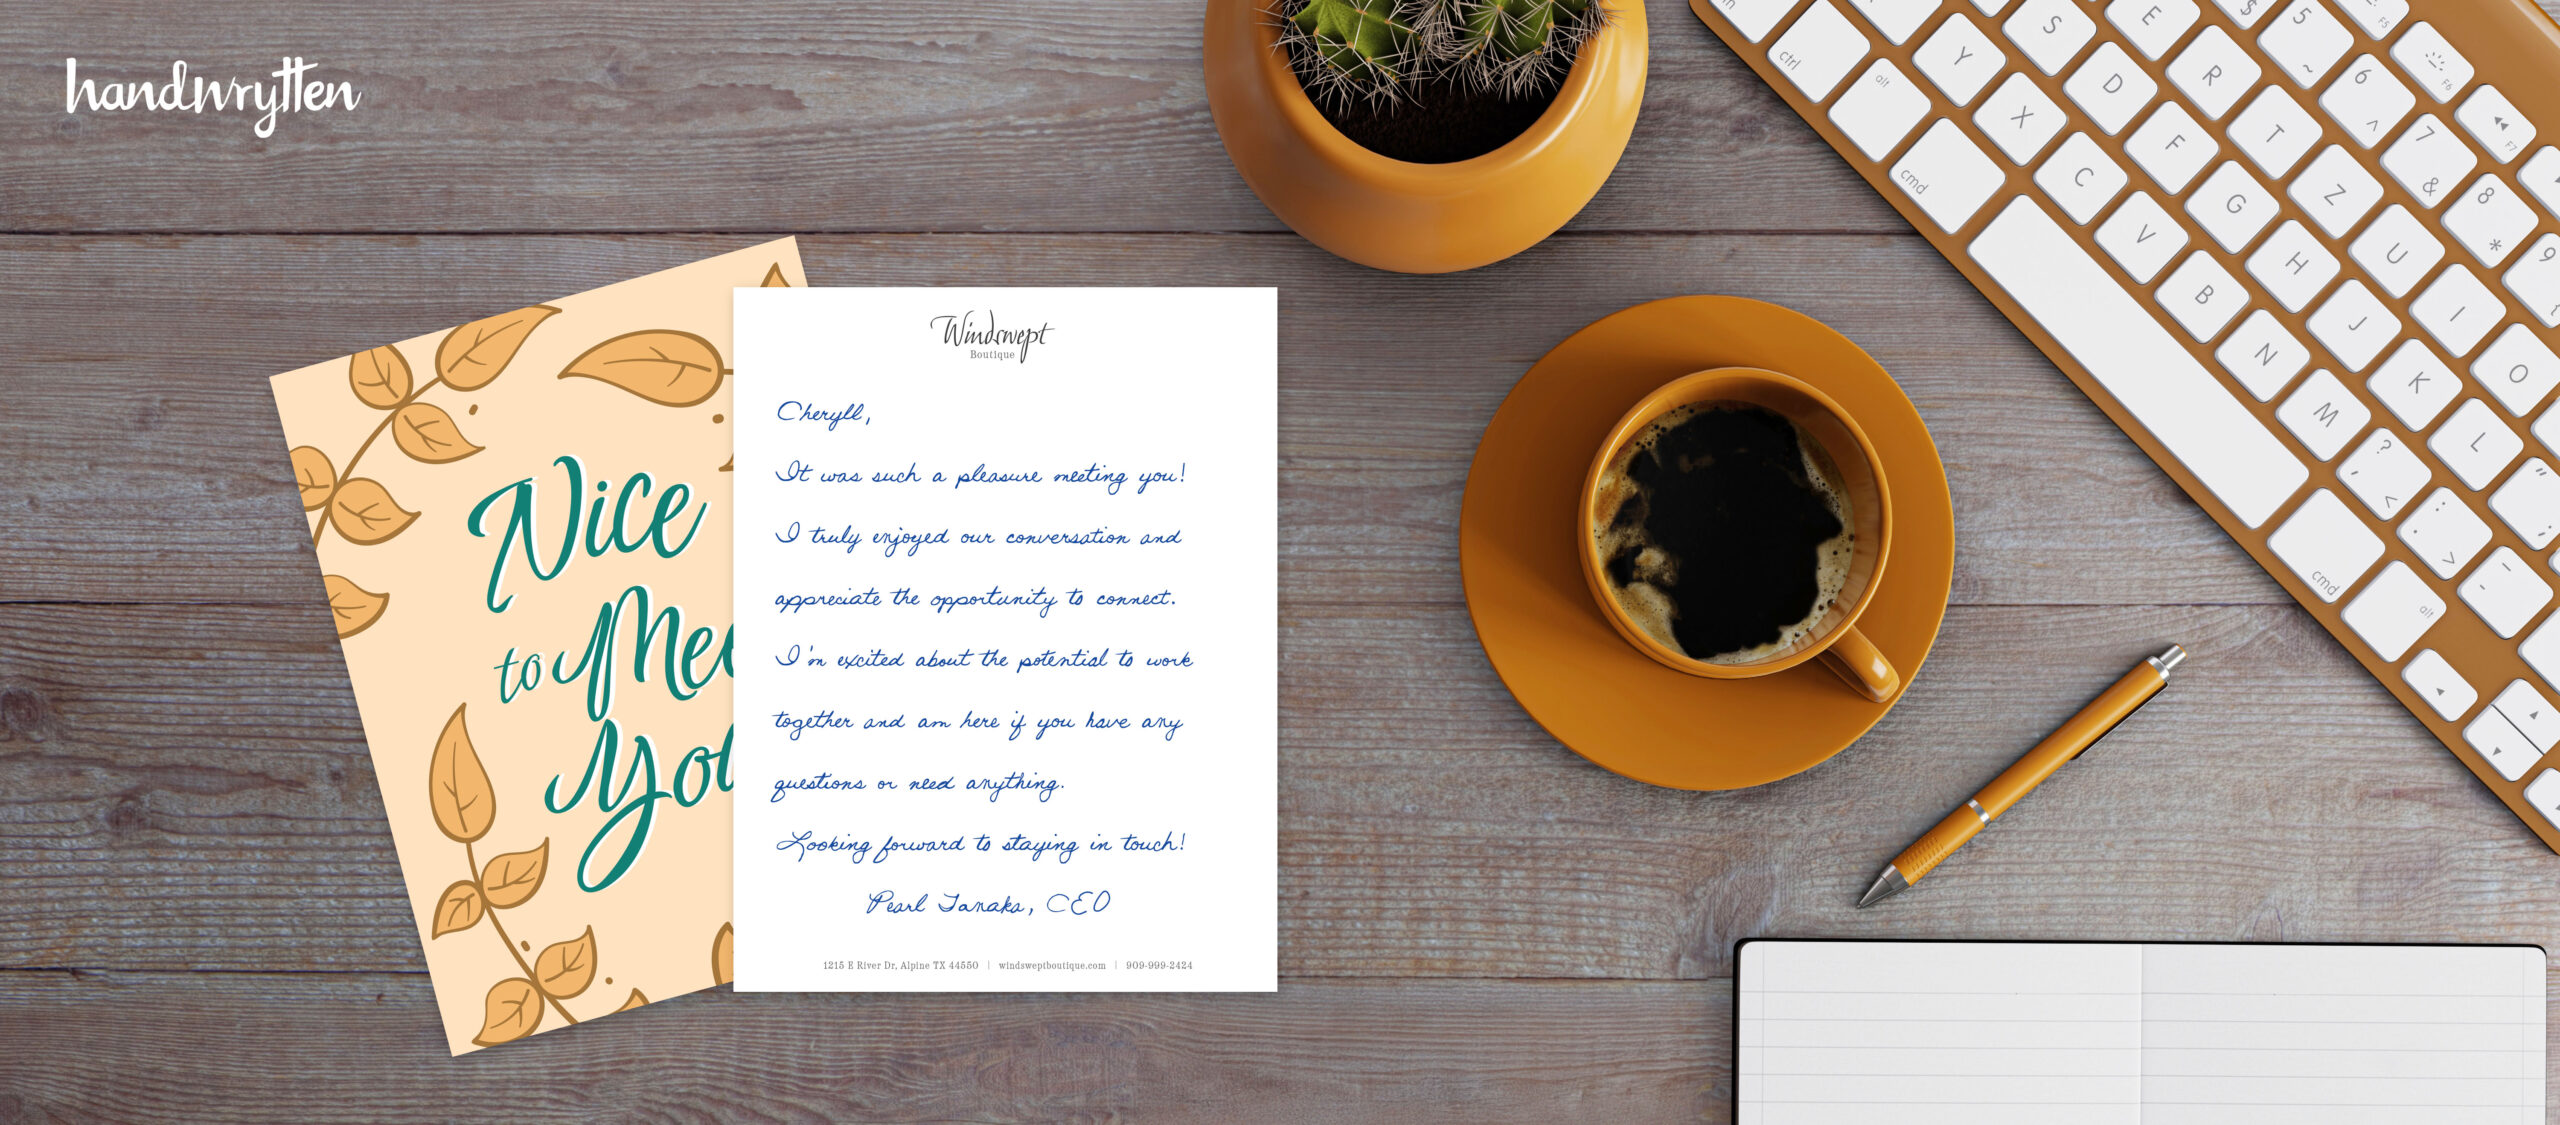 handwrytten
Nice
to Mee
You
Windswept
Boutique
Cheryll,
It was such a pleasure meeting you!
I truly enjoyed our conversation and
appreciate the opportunity to connect.
I'm excited about the potential to work
together and am here if you have any
questions or need anything.
Looking forward to staying in touch!
Pearl Tanaka, CEO
1215 E River Dr, Alpine TX 44550 | windsweptboutique.com | 909-999-2424
S E $ 5 F5
ctrl alt Y D R ~ 6 F6
cmd X F T ^ 7 F7
C G Z & 8
V H U * 9
B J I
N K O
M L
? , <
: . >
cmd alt _ -